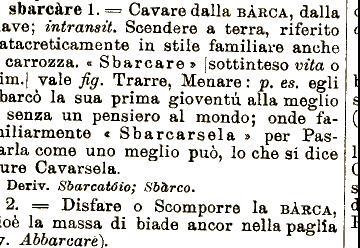 sbarcàre 1. = Cavare dalla BÀRCA, dalla
ave; intransit. Scendere a terra, riferito
atacreticamente in stile familiare anche
carrozza. « Sbarcare » [sottinteso vita o
im.] vale fig. Trarre, Menare: p. es. egli
barcò la sua prima gioventú alla meglio
senza un pensiero al mondo; onde fa-
iliarmente « Sbarcarsela » per Pas-
arla come uno meglio può, lo che si dice
ure Cavarsela.
Deriv. Sbarcatóio; Sbàrco.
2. = Disfare o Scomporre la BÀRCA,
ioè la massa di biade ancor nella paglia
v. Abbarcare).